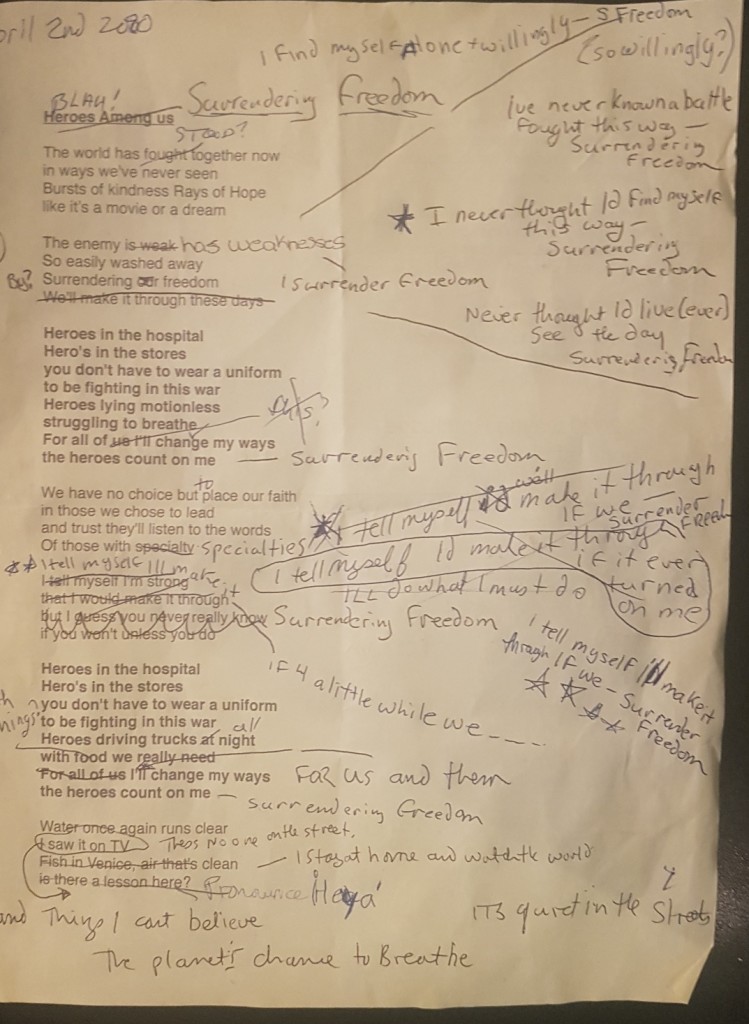 April 2nd 2020
I find myself Alone + willingly — S Freedom
(so willingly?)
BLAH!
Surrendering Freedom
Heroes Among us
STOOD?
The world has fought together now
in ways we've never seen
Bursts of kindness Rays of Hope
like it's a movie or a dream
Ive never known a battle
Fought this way —
Surrendering
Freedom
★ I never thought Id find myself
this way —
Surrendering
Freedom
The enemy is weak has weaknesses
So easily washed away
By? Surrendering our freedom
I surrender Freedom
We'll make it through these days
Never thought Id live (ever)
See the day
Surrenderig Freedom
Heroes in the hospital
Hero's in the stores
you don't have to wear a uniform
to be fighting in this war
Heroes lying motionless
struggling to breathe
For all of us I'll change my ways
the heroes count on me — Surrenderig Freedom
We have no choice but to place our faith
in those we chose to lead
and trust they'll listen to the words
Of those with specialty specialties
★ I tell myself we'll make it through
IF we —
Surrender
Freedom
I tell myself Id make it through
if it ever
turned
on me
I'LL do what I must do
★★ I tell myself Ill make it
I tell myself I'm strong
that I would make it through
but I guess you never really know
if you won't unless you do
Surrendering Freedom
I tell myself i'll make it
through IF we — Surrender
Freedom
★ ★ ★ ★
IF 4 a little while we _ _ _ _
Heroes in the hospital
Hero's in the stores
you don't have to wear a uniform
to be fighting in this war
Heroes driving trucks at all night
with food we really need
For all of us I'll change my ways
For us and them
the heroes count on me — surrendering Freedom
Water once again runs clear
I saw it on TV
Theres No one on the street,
Fish in Venice, air that's clean
— I stay at home and watch the world
is there a lesson here? Pronounce Heya'
and Things I cant believe
ITS quiet in the Streets
The planet's chance to Breathe